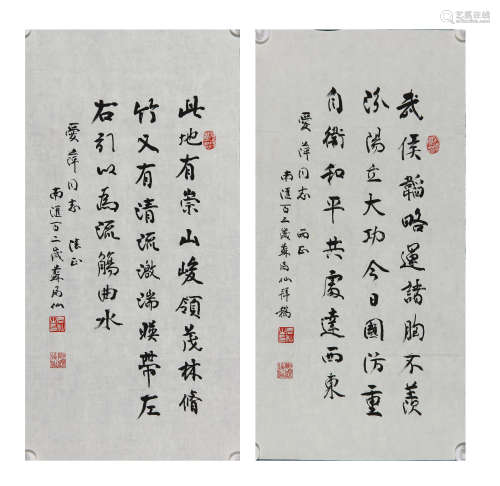 艺狐在线
武侯韜略運諸胸不羨
汾陽立大功今日國防重
自衛和平共處達西東
愛萍同志 正
南滙百二歲蘇局仙拜稿
此地有崇山峻領茂林脩
竹又有清流激湍暎帶左
右引以為流觴曲水
愛萍同志 法正
南滙百二歲蘇局仙